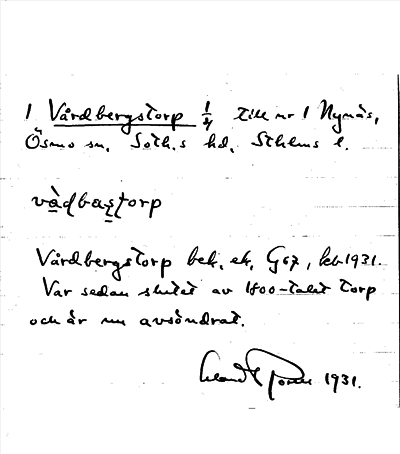 1 Vårdbergstorp 1/4 till nr 1 Nynäs,
Ösmo sn, Soth.s hd, Sthlms l.
vàdbaʂtorp
Vårdbergstorp bek. ek. G67, kb. 1931.
Var sedan slutet av 1800-talet torp
och är nu avsöndrat.
1931.